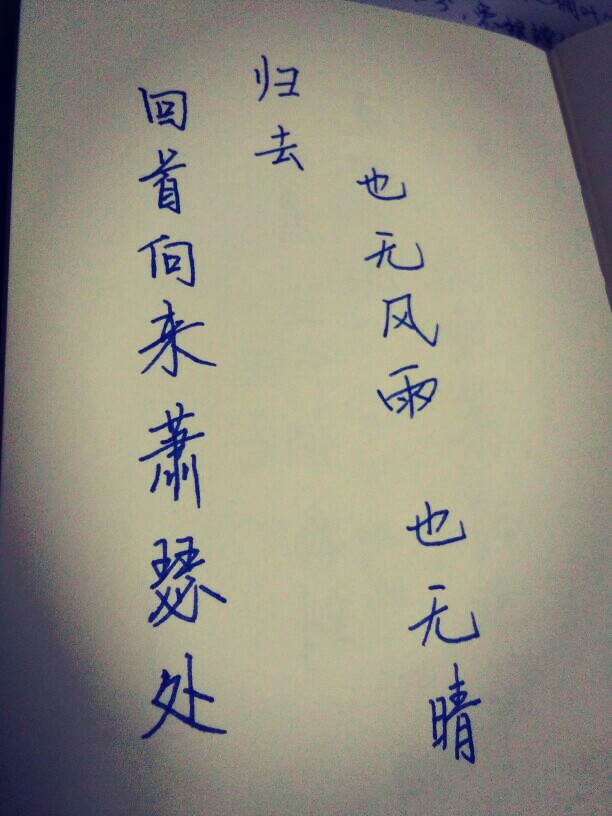 回首向来萧瑟处
归去
也无风雨 也无晴